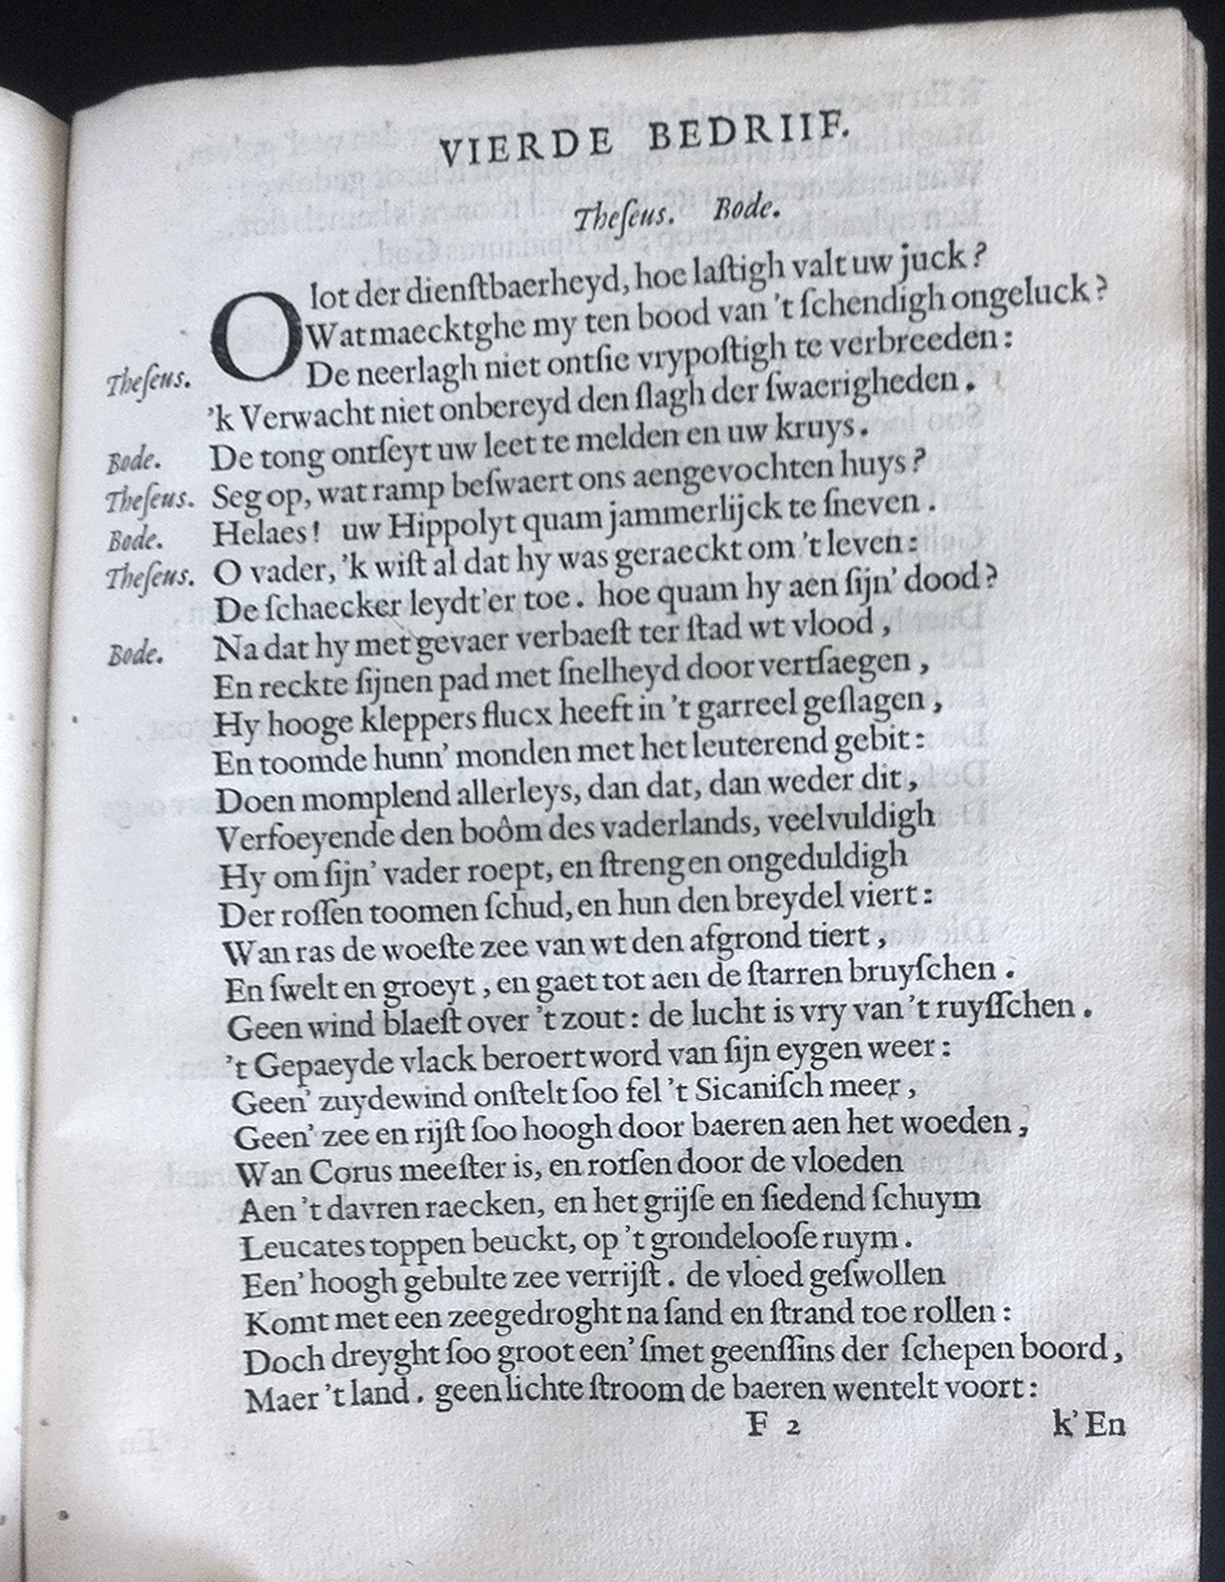 VIERDE BEDRIIF.
Theſeus. Bode.
O lot der dienſtbaerheyd, hoe laſtigh valt uw juck?
Wat maecktghe my ten bood van 't ſchendigh ongeluck?
Theſeus. De neerlagh niet ontſie vrypoſtigh te verbreeden:
'k Verwacht niet onbereyd den ſlagh der ſwaerigheden.
Bode. De tong ontſeyt uw leet te melden en uw kruys.
Theſeus. Seg op, wat ramp beſwaert ons aengevochten huys?
Bode. Helaes! uw Hippolyt quam jammerlijck te ſneven.
Theſeus. O vader, 'k wiſt al dat hy was geraeckt om 't leven:
De ſchaecker leydt'er toe. hoe quam hy aen ſijn' dood?
Bode. Na dat hy met gevaer verbaeſt ter ſtad wt vlood,
En reckte ſijnen pad met ſnelheyd door vertſaegen,
Hy hooge kleppers flucx heeft in 't garreel geſlagen,
En toomde hunn' monden met het leuterend gebit:
Doen momplend allerleys, dan dat, dan weder dit,
Verfoeyende den boôm des vaderlands, veelvuldigh
Hy om ſijn' vader roept, en ſtreng en ongeduldigh
Der roſſen toomen ſchud, en hun den breydel viert:
Wan ras de woeſte zee van wt den afgrond tiert,
En ſwelt en groeyt, en gaet tot aen de ſtarren bruyſchen.
Geen wind blaeſt over 't zout: de lucht is vry van 't ruyſſchen.
't Gepaeyde vlack beroert word van ſijn eygen weer:
Geen' zuydewind onſtelt ſoo fel 't Sicaniſch meer,
Geen' zee en rijſt ſoo hoogh door baeren aen het woeden,
Wan Corus meeſter is, en rotſen door de vloeden
Aen 't davren raecken, en het grijſe en ſiedend ſchuym
Leucates toppen beuckt, op 't grondelooſe ruym.
Een' hoogh gebulte zee verrijſt. de vloed geſwollen
Komt met een zeegedroght na ſand en ſtrand toe rollen:
Doch dreyght ſoo groot een' ſmet geenſſins der ſchepen boord,
Maer 't land. geen lichte ſtroom de baeren wentelt voort:
F 2 k' En